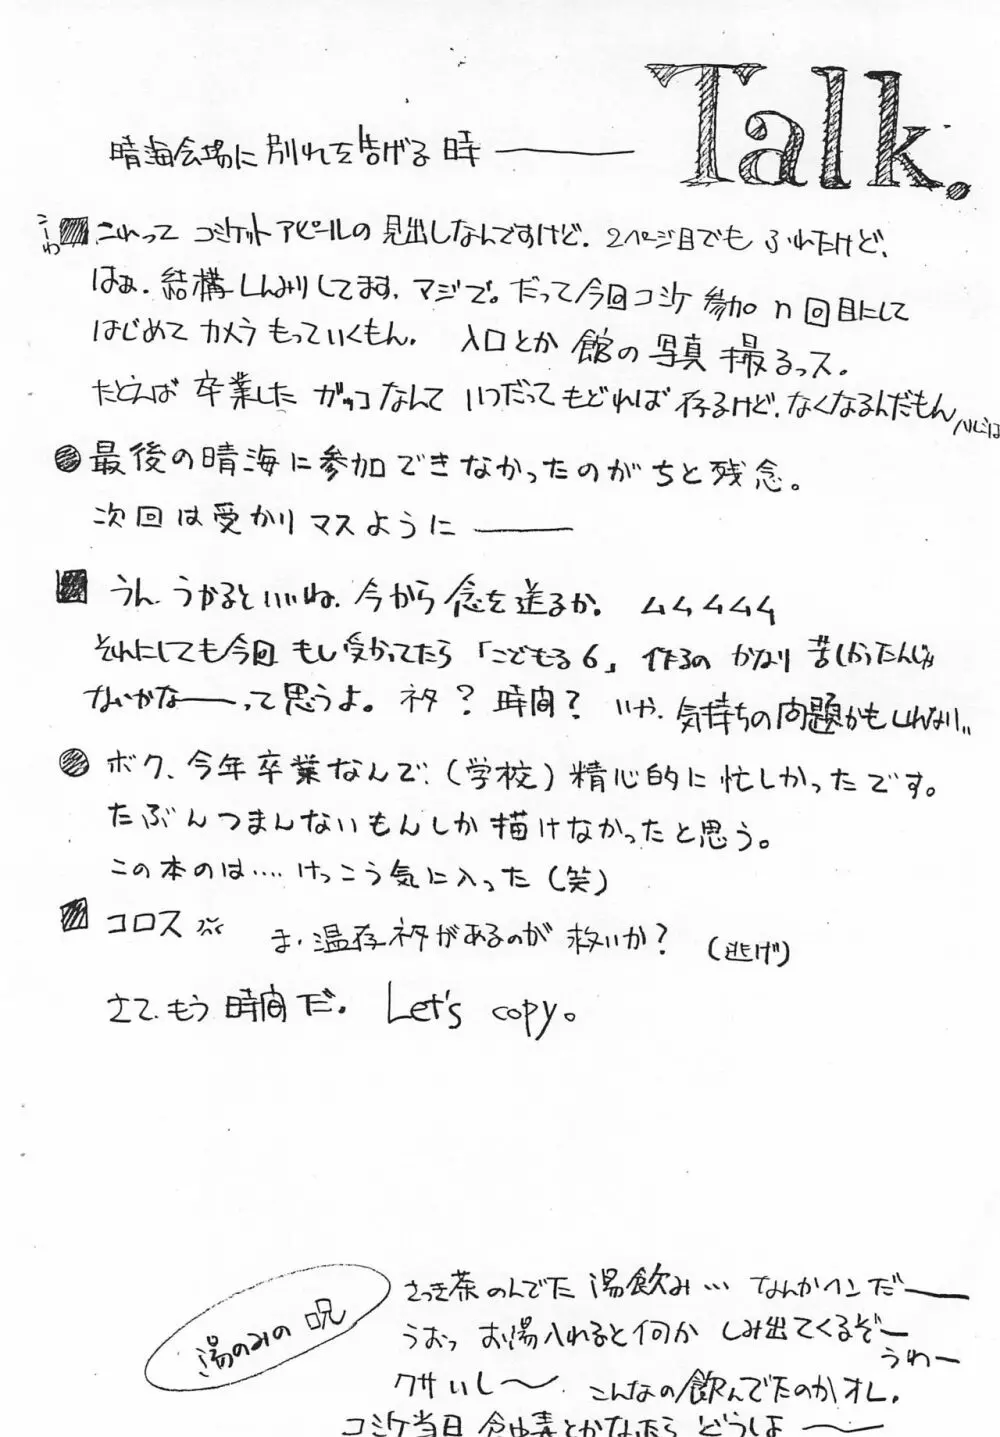 Talk.
晴海会場に別れを告げる時――
こーわ
これって コミケットアピールの見出しなんですけど. 2ページ目でも ふれたけど、
はぁ. 結構しんみりしてます. マジで。だって今回コミケ参加n回目にして
はじめてカメラもっていくもん. 入口とか館の写真撮るっス。
たとえば 卒業した ガッコなんて いつだってもどれば存るけど. なくなるんだもん
最後の晴海に参加できなかったのがちと残念。
次回は受かりマスように――
うん. うかるといいね. 今から念を送るか. ムムムムム
それにしても今回 もし受かってたら「こどもる6」作るの かなり 苦しかったんじゃ
ないかな――って思うよ。ネタ？時間？ いや. 気持ちの問題かもしれない..
ボク、今年卒業なんで、（学校）精心的に忙しかったです。
たぶんつまんないもんしか描けなかったと思う。
この本のは‥‥けっこう気に入った（笑）
コロス ま. 温存ネタがあるのが 救いか？（逃げ）
さて. もう時間だ. Let's copy。
湯のみの呪
さっき茶のんでた 湯飲み… なんかヘンだ――
うおっ お湯入れると何か しみ出てくるぞー
うわー
クサいし〜. こんなの飲んでたのかオレ.
コミケ当日 食中毒とかなったら どうしよ〜